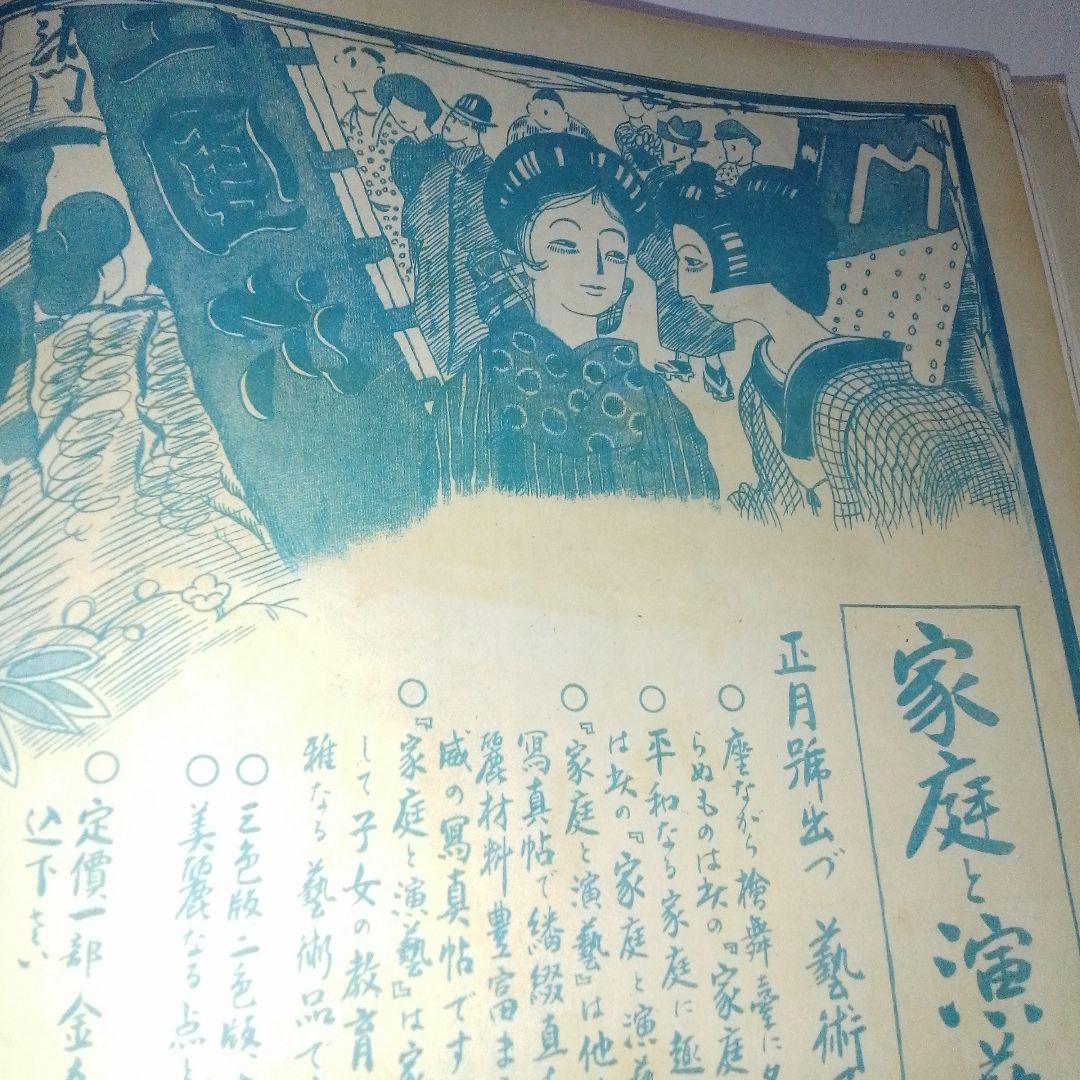 家庭と演藝
正月號出づ 藝術
○座ながら檜舞臺に
らぬものは此の『家庭
○平和なる家庭に趣
は此の『家庭と演藝
○『家庭と演藝』は他
寫真帖で繙綴直
麗材料豊富ま
威の寫真帖です
○『家庭と演藝』は家
して子女の教育
雅なる藝術品で
○三色版二色版
○美麗なる点と
○定價一部 金
込下さい
門